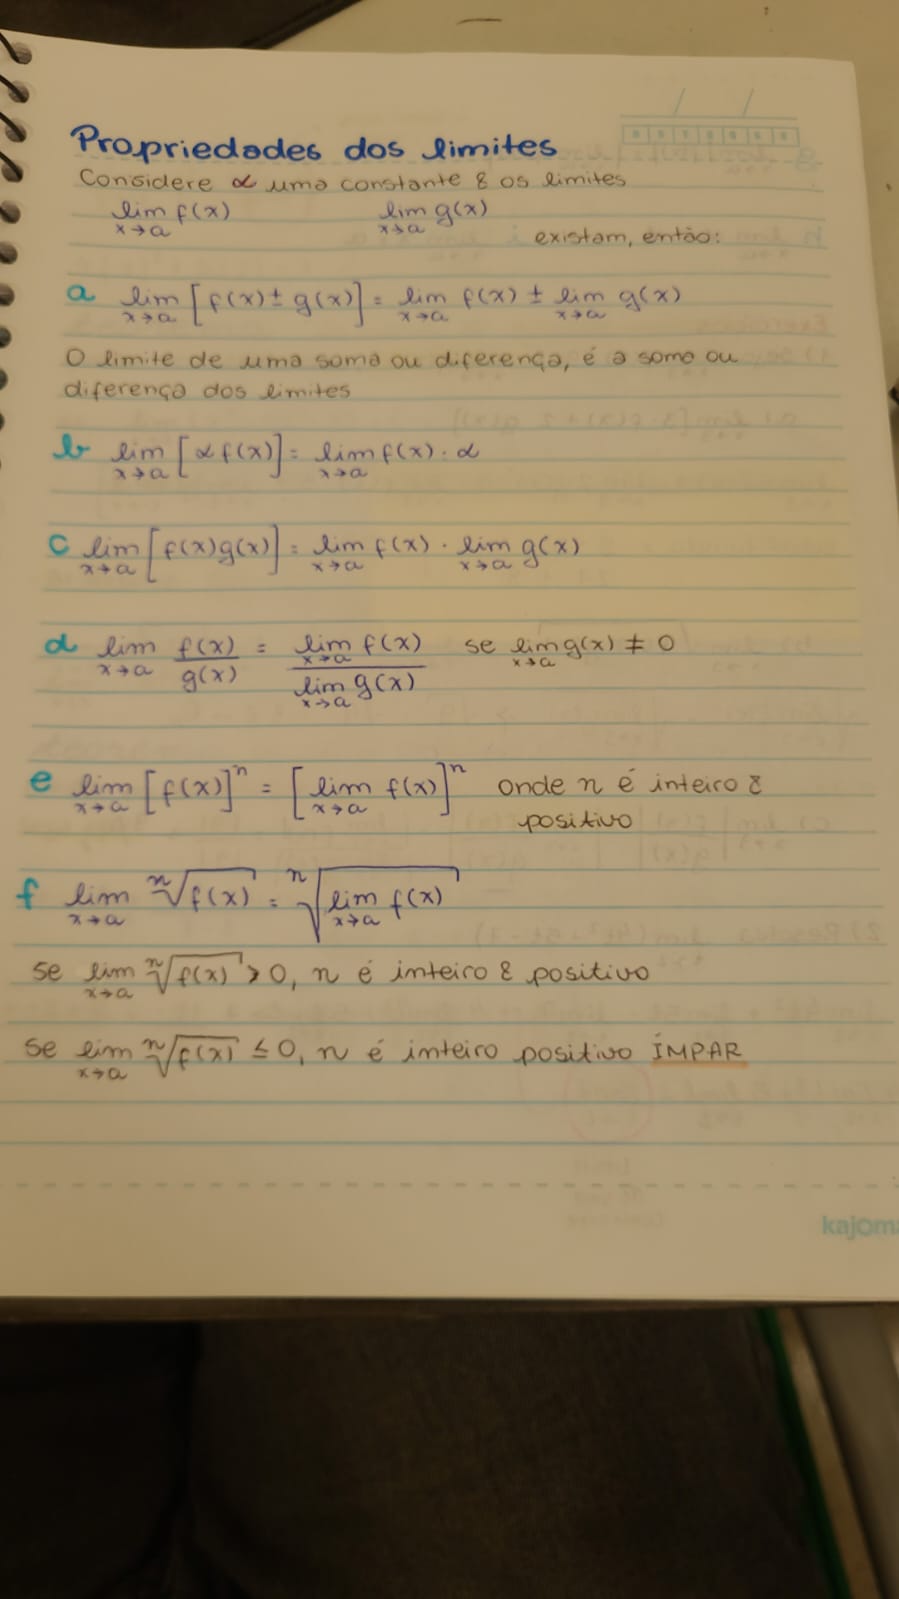 Propriedades dos limites
Considere α uma constante & os limites
lim x→a f(x) lim x→a g(x)
existam, então:
a lim x→a [f(x) ± g(x)] = lim x→a f(x) ± lim x→a g(x)
O limite de uma soma ou diferença, é a soma ou
diferença dos limites
b lim x→a [α f(x)] = lim x→a f(x) · α
c lim x→a [f(x)g(x)] = lim x→a f(x) · lim x→a g(x)
d lim x→a f(x)/g(x) = lim x→a f(x) / lim x→a g(x) se lim x→a g(x) ≠ 0
e lim x→a [f(x)]^n = [lim x→a f(x)]^n onde n é inteiro &
positivo
f lim x→a ⁿ√f(x) = ⁿ√lim x→a f(x)
Se lim x→a ⁿ√f(x) > 0, n é inteiro & positivo
Se lim x→a ⁿ√f(x) ≤ 0, n é inteiro positivo ÍMPAR